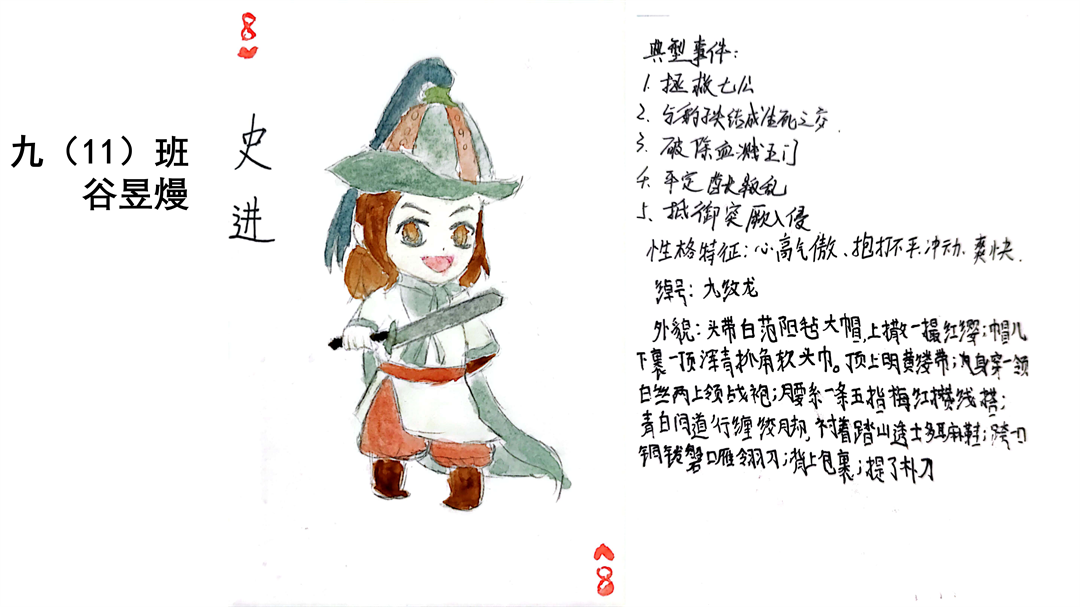 九（11）班
谷昱熳
8
史
进
8
典型事件：
1. 拯救七公
2. 与豹子头结成生死之交.
3. 破除血溅玉门
4. 平定酋长叛乱
5、抵御突厥入侵
性格特征：心高气傲、抱打不平、冲动、爽快.
绰号：九纹龙
外貌：头带白范阳毡大帽,上撒一撮红缨；帽儿
下裹一顶浑青抓角软头巾。顶上明黄缕带；身穿一领
白丝两上领战袍；腰系一条五指梅红攒线搭；
青白间道行缠绞脚,衬着踏山透土多耳麻鞋；跨一口
铜钹磐口雁翎刀；背上包裹；提了朴刀